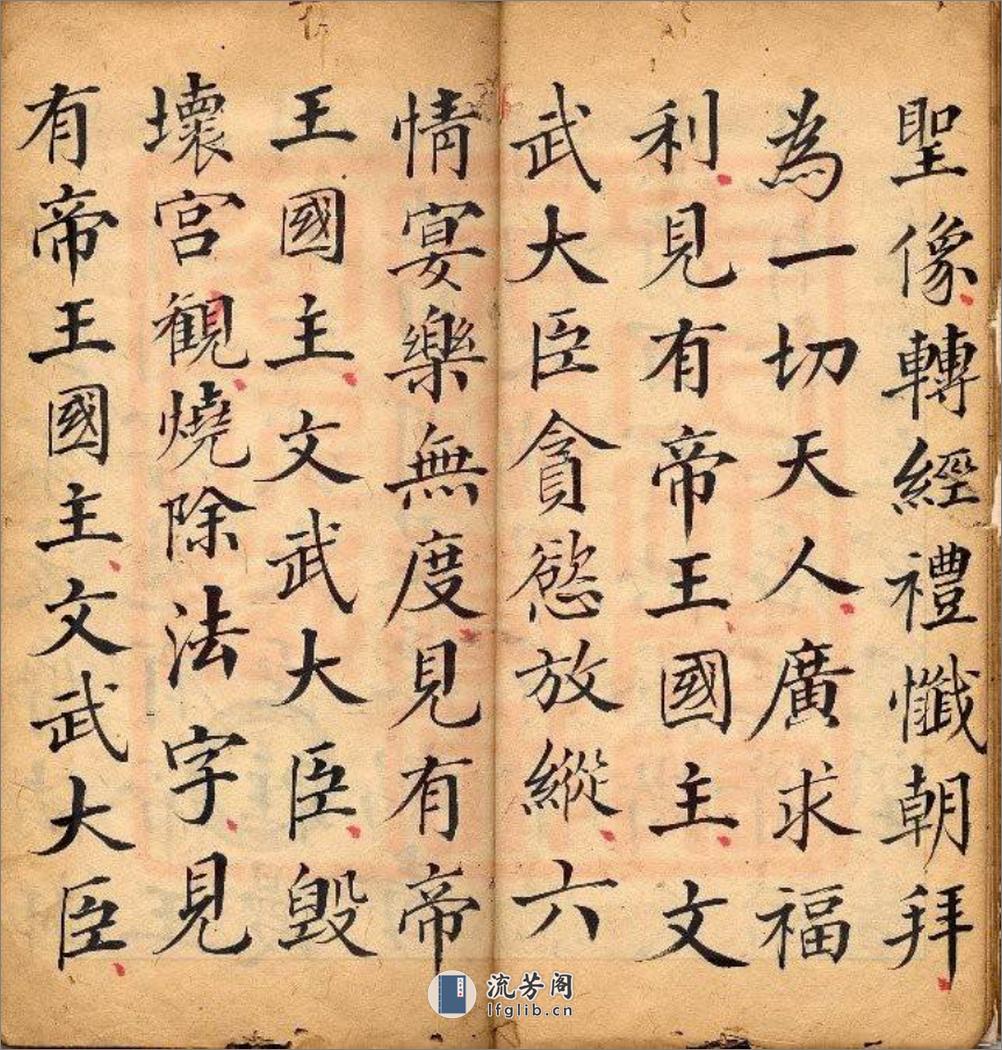 聖像轉經禮懺朝拜
為一切天人廣求福
利見有帝王國主文
武大臣貪慾放縱六
情宴樂無度見有帝
王國主文武大臣毀
壞宮觀燒除法字見
有帝王國主文武大臣
流芳阁
lfglib.cn